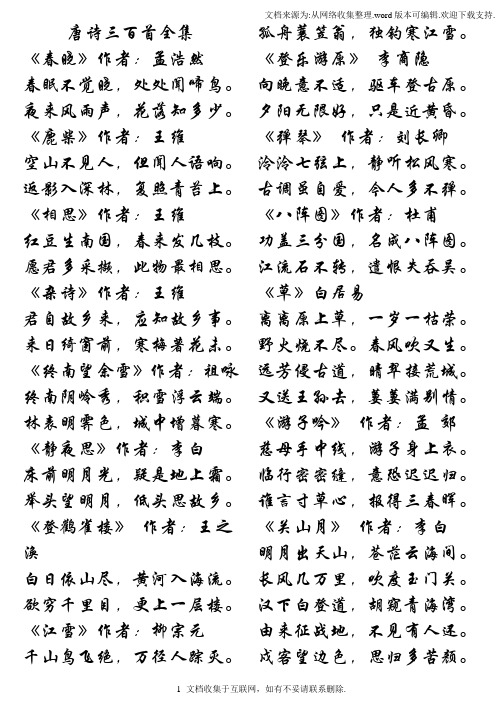 文档来源为:从网络收集整理.word版本可编辑.欢迎下载支持.
唐诗三百首全集
《春晓》作者：孟浩然
春眠不觉晓，处处闻啼鸟。
夜来风雨声，花落知多少。
《鹿柴》作者：王维
空山不见人，但闻人语响。
返影入深林，复照青苔上。
《相思》作者：王维
红豆生南国，春来发几枝。
愿君多采撷，此物最相思。
《杂诗》作者：王维
君自故乡来，应知故乡事。
来日绮窗前，寒梅著花未。
《终南望余雪》作者：祖咏
终南阴岭秀，积雪浮云端。
林表明霁色，城中增暮寒。
《静夜思》作者：李白
床前明月光，疑是地上霜。
举头望明月，低头思故乡。
《登鹳雀楼》 作者：王之
涣
白日依山尽，黄河入海流。
欲穷千里目，更上一层楼。
《江雪》作者：柳宗元
千山鸟飞绝，万径人踪灭。
孤舟蓑笠翁，独钓寒江雪。
《登乐游原》 李商隐
向晚意不适，驱车登古原。
夕阳无限好，只是近黄昏。
《弹琴》 作者：刘长卿
泠泠七弦上，静听松风寒。
古调虽自爱，今人多不弹。
《八阵图》作者：杜甫
功盖三分国，名成八阵图。
江流石不转，遗恨失吞吴。
《草》白居易
离离原上草，一岁一枯荣。
野火烧不尽。春风吹又生。
远芳侵古道，晴翠接荒城。
又送王孙去，萋萋满别情。
《游子吟》 作者：孟 郊
慈母手中线，游子身上衣。
临行密密缝，意恐迟迟归。
谁言寸草心，报得三春晖。
《关山月》 作者：李白
明月出天山，苍茫云海间。
长风几万里，吹度玉门关。
汉下白登道，胡窥青海湾。
由来征战地，不见有人还。
戍客望边色，思归多苦颜。
1 文档收集于互联网，如有不妥请联系删除.